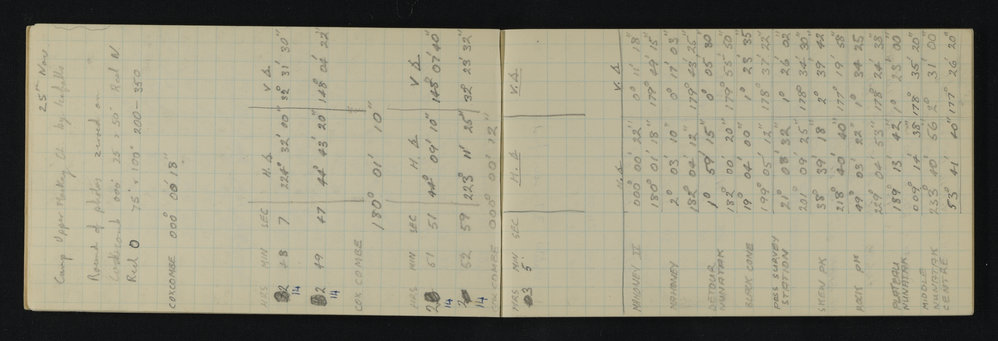 25th Nov
Camp Upper Mackay Gl. by icefalls
Round of photos zeroed on
000° 25 × 50' Reel N
75° × 100' 200 - 350
Reel O
COXCOMBE 000° 00' 18"
HRS MIN SEC H. ∆. V. ∆.
14 48 7 224° 32' 00" 32° 31' 30"
14 49 47 44° 43' 20" 148° 04' 22"
COX COMBE 180° 01' 10"
HRS MIN SEC H. ∆. V. ∆.
14 51 51 44° 09' 10" 148° 07' 40"
14 52 59 223° 11' 25" 32° 23' 32"
COXCOMBE 000° 00' 12"
HRS MIN SEC H. ∆ V. ∆.
H. ∆. V. ∆.
MAHONEY II 000° 00' 22" 0° 11' 18"
180° 01' 18" 179° 49' 15"
MAHONEY 2° 03' 10" 0° 17' 03"
182° 04' 12" 179° 43' 25"
DETOUR NUNATAK 1° 59' 15" 0° 05' 30"
182° 00' 20" 179° 55' 50"
BLACK CONE 19° 04' 00" 1° 23' 35"
199° 05' 12" 178° 37' 22"
PASS SURVEY STATION 21° 08' 32" 1° 26' 02"
201° 09' 25" 178° 34' 30"
SKEW PK 38° 39' 18" 2° 39' 42"
218° 40' 40" 177° 19' 58"
PK 49° 03' 22" 1° 34' 25"
229° 04' 53" 178° 24' 38"
PLATEAU NUNATAK 189° 13' 42" 1° 23' 00"
009° 14' 38" 178° 35' 20"
MIDDLE NUNATAK CENTRE 233° 40' 56" 2° 31' 00"
53° 41' 40" 177° 26' 20"